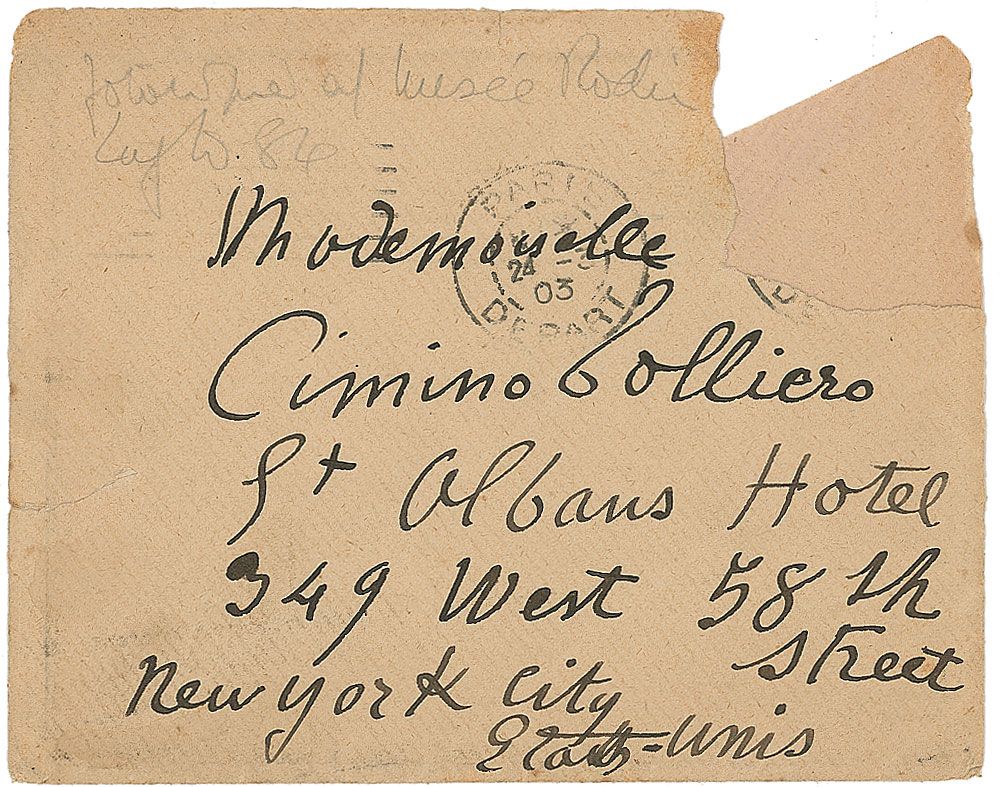 Musée Rodin
86
PARIS
24 - 3
03
DEPART
Mademoiselle
Cimino Folliero
St Albans Hotel
349 West 58 th
Street
New York City
Etats-Unis